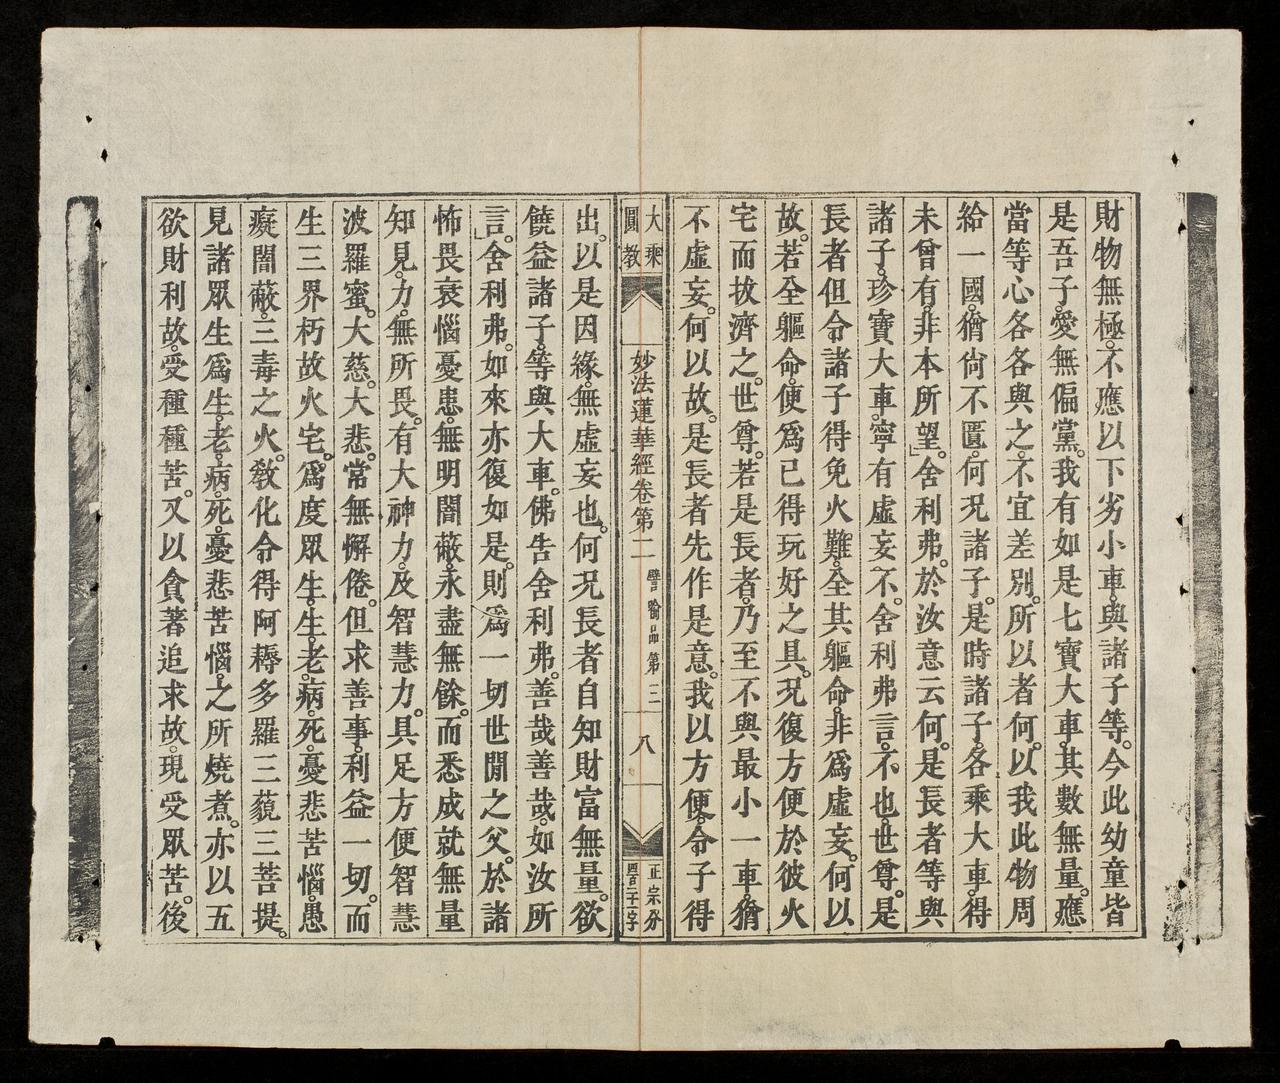 財物無極。不應以下劣小車。與諸子等。今此幼童皆
是吾子。愛無偏黨。我有如是七寶大車。其數無量。應
當等心各各與之。不宜差別。所以者何。以我此物周
給一國。猶尙不匱。何况諸子。是時諸子。各乘大車。得
未曾有。非本所望。」舍利弗。於汝意云何。是長者等與
諸子。珍寶大車。寧有虛妄不。舍利弗言。不也。世尊。是
長者但令諸子得免火難。全其軀命。非爲虛妄。何以
故。若全軀命。便爲已得玩好之具。况復方便於彼火
宅而拔濟之。世尊。若是長者。乃至不與最小一車。猶
不虛妄。何以故。是長者先作是意。我以方便。令子得
大乘
圓教
妙法蓮華經卷第二
譬喻品第三
八
正宗分
出。以是因緣。無虛妄也。何况長者自知財富無量。欲
饒益諸子。等與大車。佛告舍利弗。善哉善哉。如汝所
言。」舍利弗。如來亦復如是。則爲一切世閒之父。於諸
怖畏衰惱憂患。無明闇蔽。永盡無餘。而悉成就無量
知見。力。無所畏。有大神力。及智慧力。具足方便智慧
波羅蜜。大慈。大悲。常無懈倦。但求善事。利益一切。而
生三界朽故火宅。爲度眾生。生。老。病。死。憂悲苦惱。愚
癡闇蔽。三毒之火。敎化令得阿耨多羅三藐三菩提。
見諸眾生爲生。老。病。死。憂悲苦惱。之所燒煮。亦以五
欲財利故。受種種苦。又以貪著追求故。現受眾苦。後